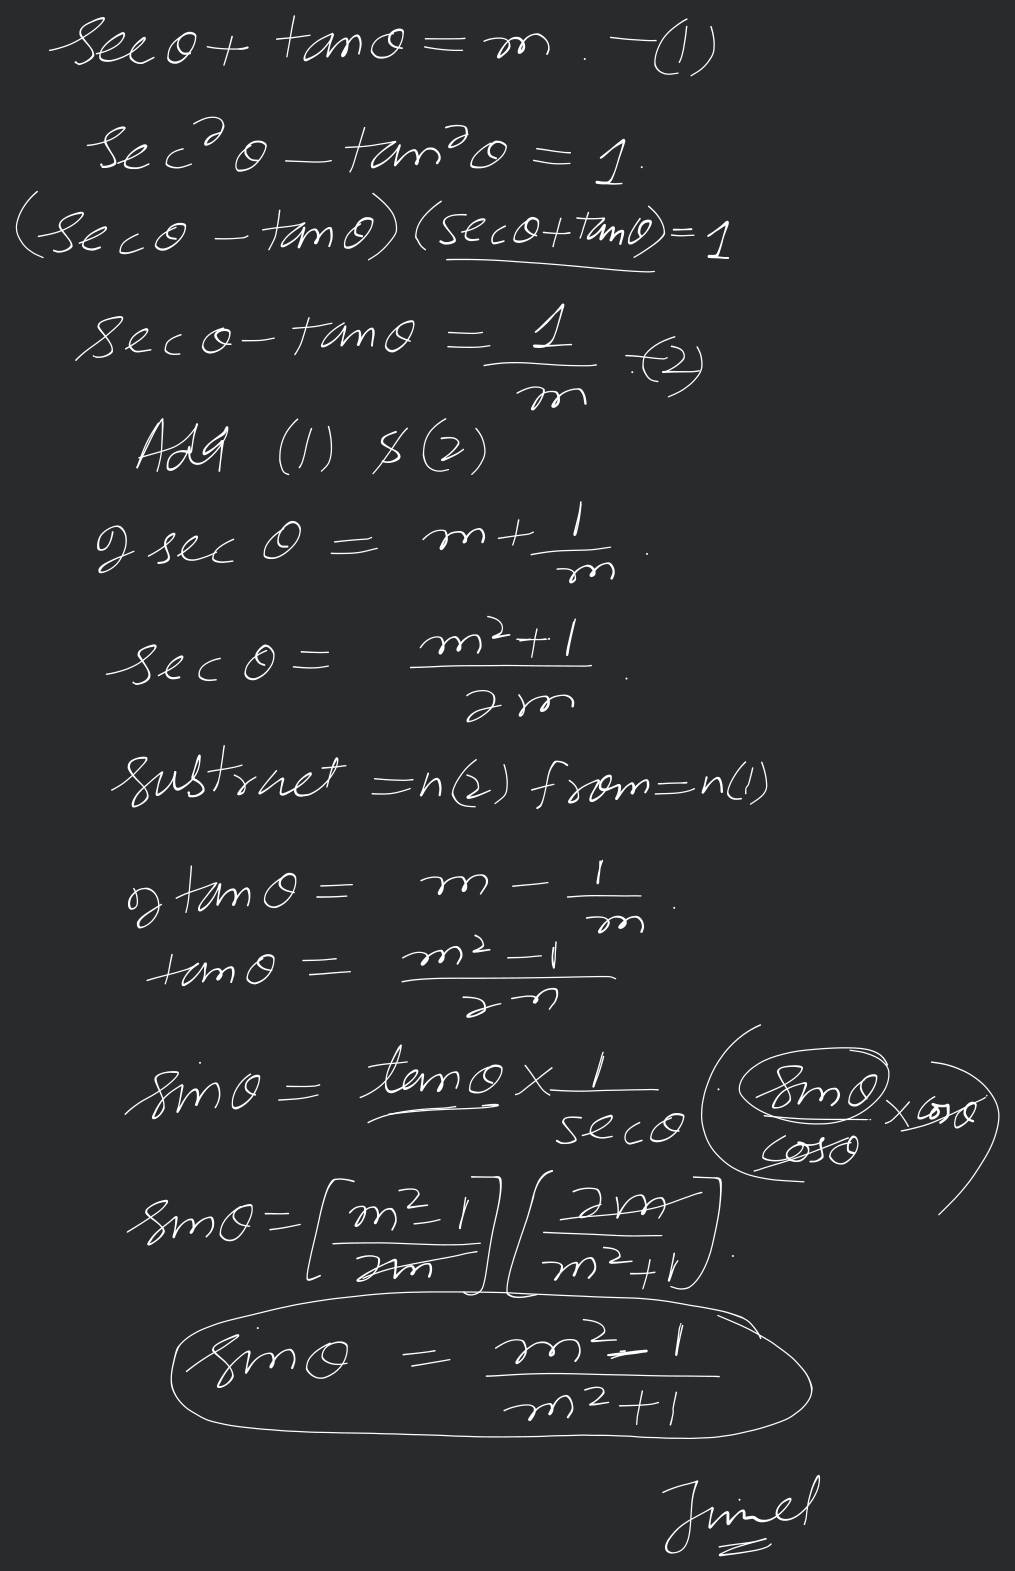 secθ + tanθ = m. -(1)
sec²θ - tan²θ = 1.
(secθ - tanθ)(secθ + tanθ) = 1
secθ - tanθ = 1/m -(2)
Add (1) & (2)
2 sec θ = m + 1/m.
sec θ = (m²+1)/2m.
Subtract =n(2) from =n(1)
2 tan θ = m - 1/m.
tan θ = (m²-1)/2m
sin θ = tan θ × 1/secθ (sinθ/cosθ × cosθ)
sin θ = [(m²-1)/2m] [2m/(m²+1)].
sin θ = (m²-1)/(m²+1)